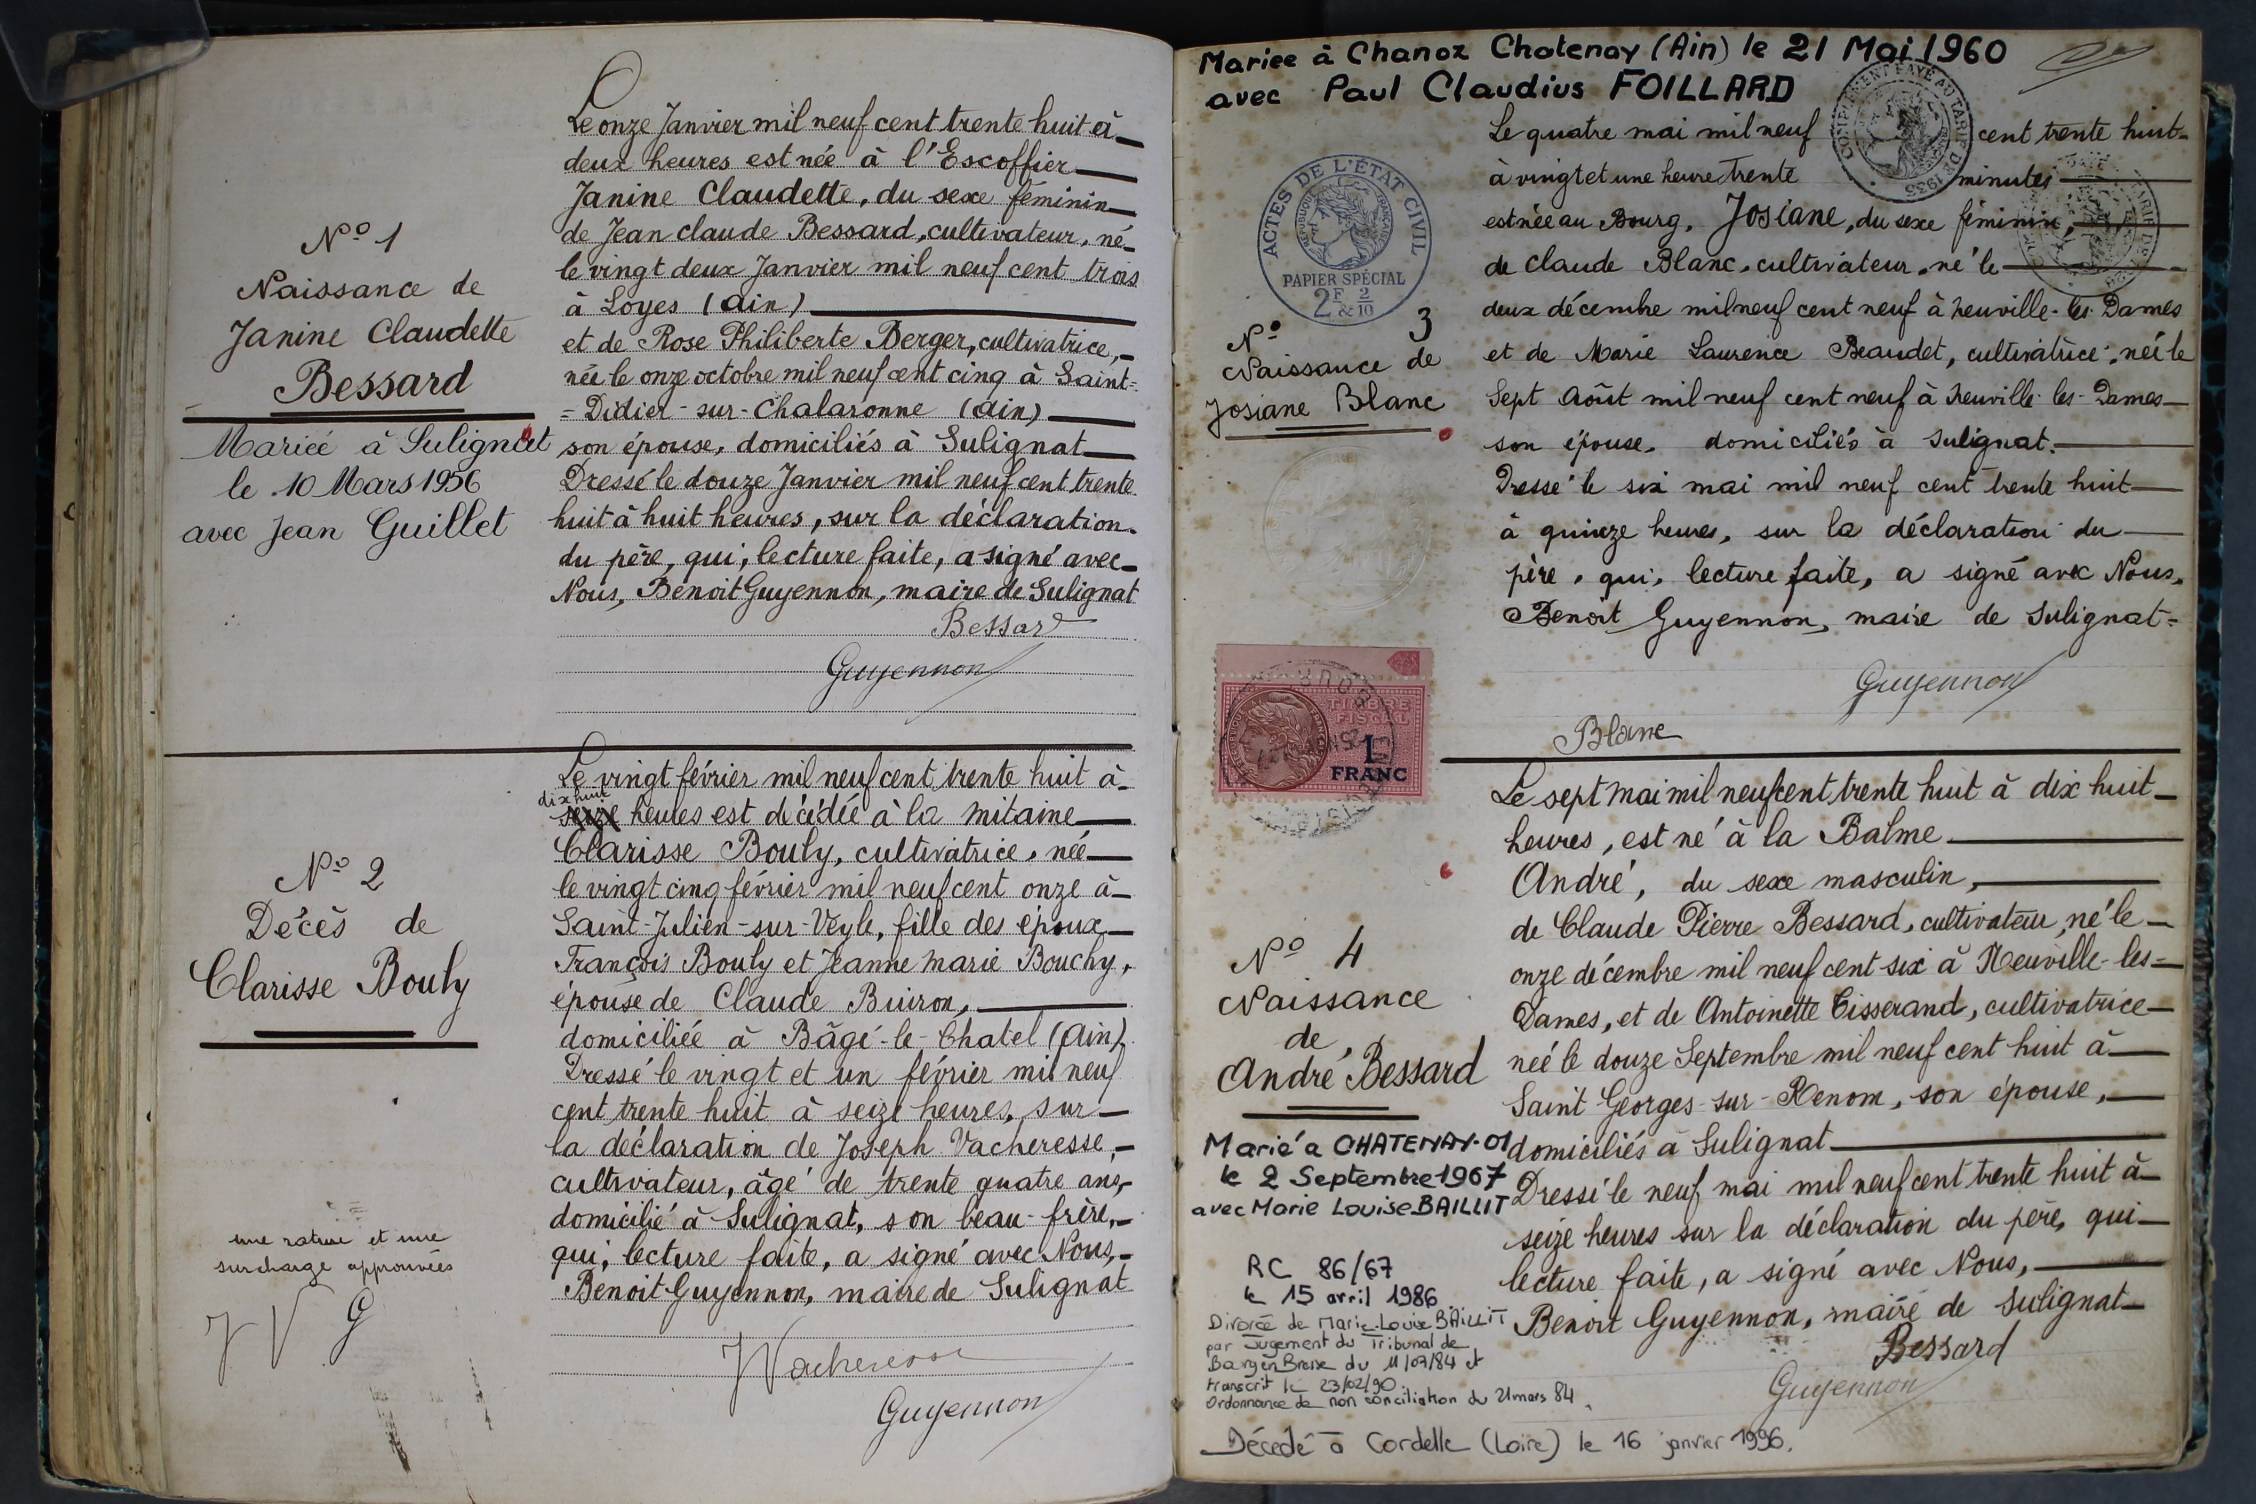 N° 1
Naissance de
Janine Claudette
Bessard
Mariée à Sulignat
le 10 Mars 1956
avec Jean Guillet
Le onze Janvier mil neuf cent trente huit à
deux heures est née à l'Escoffier
Janine Claudette, du sexe féminin
de Jean claude Bessard, cultivateur, né
le vingt deux Janvier mil neuf cent trois
à Loyes (Ain)
et de Rose Philiberte Berger, cultivatrice,
née le onze octobre mil neuf cent cinq à Saint-
=Didier-sur-Chalaronne (Ain)
son épouse, domiciliés à Sulignat
Dressé le douze Janvier mil neuf cent trente
huit à huit heures, sur la déclaration
du père, qui, lecture faite, a signé avec
Nous, Benoit Guyennon, maire de Sulignat
Bessard
Guyennon
N° 2
Décès de
Clarisse Bouly
une rature et une
surcharge approuvées
J V G
Le vingt février mil neuf cent trente huit à
dix huit
seize heures est décédée à la mitaine
Clarisse Bouly, cultivatrice, née
le vingt cinq février mil neuf cent onze à
Saint-Julien-sur-Veyle, fille des époux
François Bouly et Jeanne marie Bouchy,
épouse de Claude Buiron,
domiciliée à Bâgé-le-Chatel (Ain)
Dressé le vingt et un février mil neuf
cent trente huit à seize heures, sur
la déclaration de Joseph Vacheresse,
cultivateur, âgé de trente quatre ans,
domicilié à Sulignat, son beau-frère,
qui, lecture faite, a signé avec Nous,
Benoit Guyennon, maire de Sulignat
JVacheresse
Guyennon
Mariee à Chanoz Chatenay (Ain) le 21 Mai 1960
avec Paul Claudius FOILLARD
COMPLEMENT PAYÉ AU TARIF DE 1935
ACTES DE L'ÉTAT CIVIL
REPUBLIQUE FRANÇAISE
PAPIER SPÉCIAL
2F & 2/10
N° 3
Naissance de
Josiane Blanc
Le quatre mai mil neuf cent trente huit
à vingt et une heure trente minutes
est née au Bourg, Josiane, du sexe féminin,
de Claude Blanc, cultivateur, né le
deux décembre mil neuf cent neuf à neuville-les-Dames
et de Marie Laurence Beaudet, cultivatrice, née le
Sept Août mil neuf cent neuf à neuville-les-Dames
son épouse, domiciliés à Sulignat.
Dressé le six mai mil neuf cent trente huit
à quinze heures, sur la déclaration du
père, qui, lecture faite, a signé avec Nous,
Benoit Guyennon, maire de Sulignat=
Guyennon
Blanc
TIMBRE
FISCAL
1
FRANC
N° 4
Naissance
de
André Bessard
Marié a CHATENAY-01
le 2 Septembre 1967
avec Marie Louise BAILLIT
RC 86/67
le 15 avril 1986
Divorcé de Marie-Louise BAILLIT
par Jugement du Tribunal de
Bourg en Bresse du 11/07/84 et
transcrit le 23/02/90.
Ordonnance de non conciliation du 21 mars 84.
Décédé à Cordelle (Loire) le 16 janvier 1996.
Le sept mai mil neuf cent trente huit à dix huit
heures, est né à la Balme
André, du sexe masculin,
de Claude Pierre Bessard, cultivateur, né le
onze décembre mil neuf cent six à Neuville-les=
Dames, et de Antoinette Tisserand, cultivatrice
née le douze Septembre mil neuf cent huit à
Saint Georges-sur-Renom, son épouse,
domiciliés à Sulignat
Dressé le neuf mai mil neuf cent trente huit à
seize heures sur la déclaration du père, qui
lecture faite, a signé avec Nous,
Benoit Guyennon, maire de Sulignat
Bessard
Guyennon